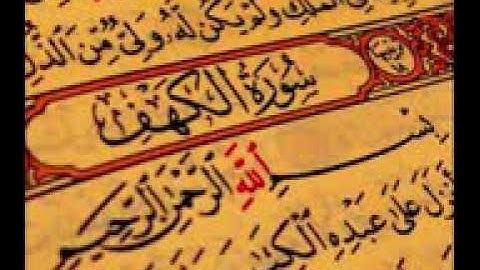 الملك ولم يكن له ولي من الذل
سُورَةُ الكَهْفِ
بِسْمِ اللَّهِ الرَّحْمَٰنِ الرَّحِيمِ
عَلَىٰ عَبْدِهِ الْكِتَٰبَ